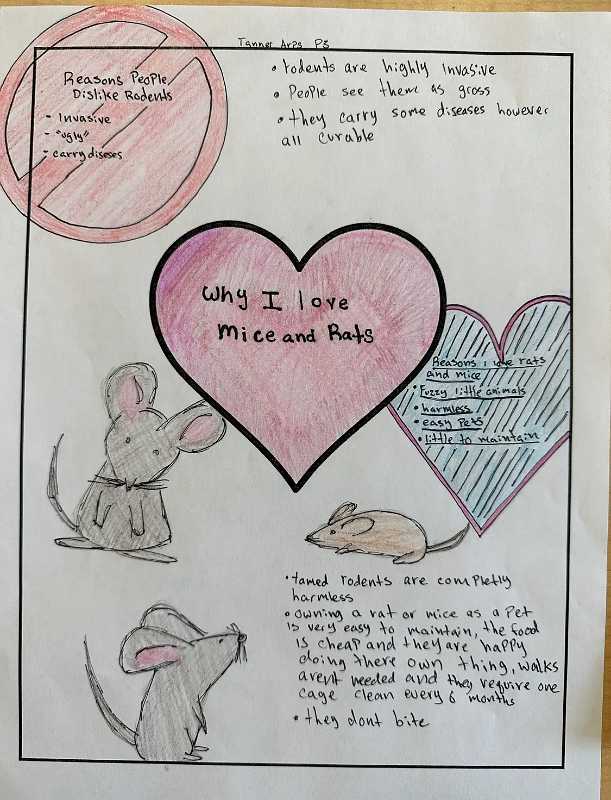 Tanner Arps P3
Reasons People
Dislike Rodents
- Invasive
- "ugly"
- carry diseses
• rodents are highly Invasive
• People see them as gross
• they carry some diseases however
all curable
Why I love
Mice and Rats
Reasons i love rats
and mice
• Fuzzy little animals
• harmless
• easy Pets
• little to maintain
• tamed rodents are completly
harmless
• owning a rat or mice as a pet
is very easy to maintain, the food
is cheap and they are happy
doing there own thing, walks
arent needed and they require one
cage clean every 6 months
• they dont bite